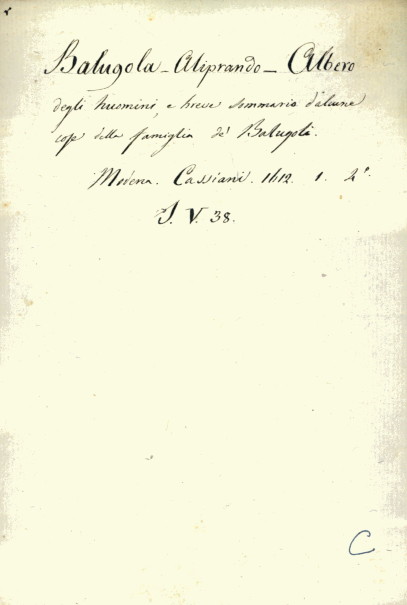 Balugola - Aliprando - Albero
degli huomini, e breve sommario d'alcune
cose della famiglia de' Balugoli.
Modena. Cassiani. 1612. 1. 4°.
J. V. 38.
C